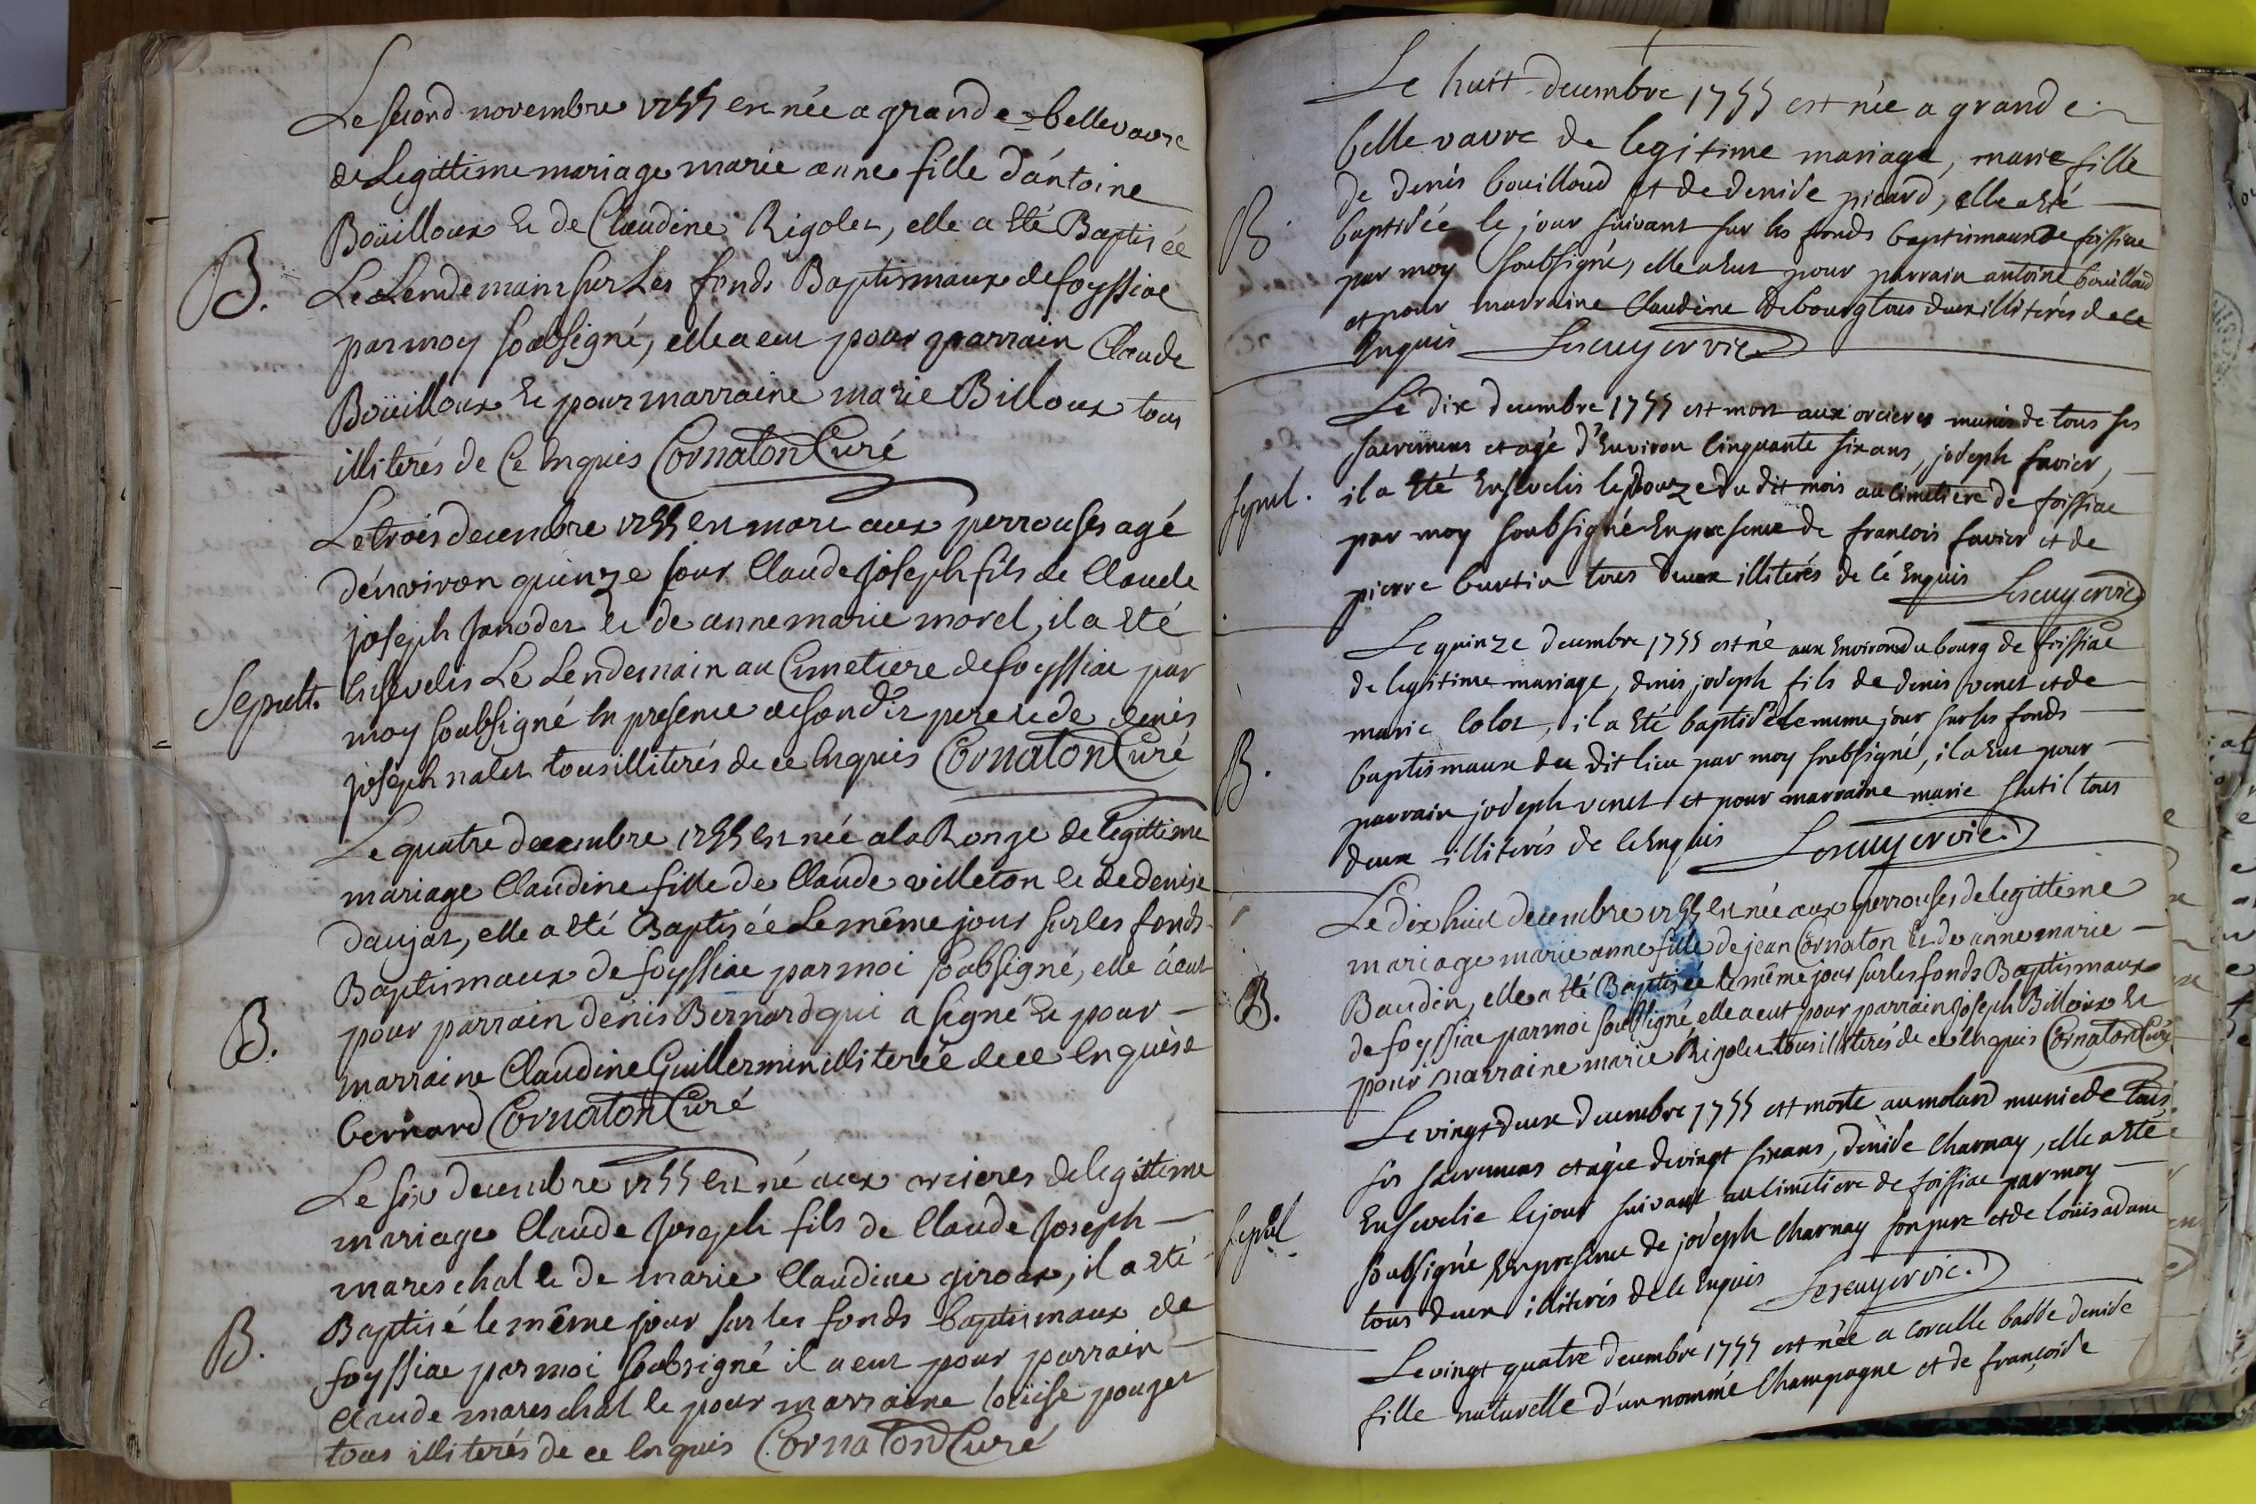 Le second novembre 1755 est née a grande=bellevavre
de Legittime mariage marie anne fille d'antoine
Boüilloux et de Claudine Rigolet, elle a eté Baptisée
B.
Le Lendemain sur Les fonds Baptismaux de foyssiac
par moy soubsigné, elle a eut pour parrain Claude
Boüilloux et pour marraine marie Billoux tous
illiterés de Ce enquis Cornaton Curé
Le trois decembre 1755 est mort aux perrouses agé
d'environ quinze jour Claude joseph fils de Claude
joseph janodet et de anne marie morel, il a eté
Sepult.
ensevelis Le Lendemain au Cimetiere de foyssiac par
moy soubsigné en presence de son dit pere et de denis
joseph nalet tous illiterés de ce enquis Cornaton Curé
Le quatre decembre 1755 est née a la Ronze de legittime
mariage Claudine fille de Claude villeton et de denise
daujat, elle a eté Baptisée Le même jour sur les fonds
Baptismaux de foyssiac par moi soubsigné, elle a eut
B.
pour parrain denis Bernard qui a signé et pour
marraine Claudine Guillermin illiterée de ce enquise
bernard Cornaton Curé
Le six decembre 1755 est né aux orcieres de legittime
mariage Claude joseph fils de Claude joseph
mareschal et de marie Claudine giroux, il a eté
B.
Baptisé le même jour sur les fonds baptismaux de
foyssiac par moi soubsigné il a eut pour parrain
claude mareschal et pour marraine loüise pouget
tous illiterés de ce enquis Cornaton Curé
Le huit decembre 1755 est née a grande
belle vavre de legitime mariage, marie fille
de denis bouilloud et de denise picard, elle a eté
B
baptisée le jour suivant sur les fonds baptismaux de foissiac
par moy soubsigné, elle a eut pour parrain antoine bouilloud
et pour marraine Claudine debourg tous deux illiterés de ce
enquis Lescuyer vic.
Le dix decembre 1755 est mort aux orcieres munis de tous ses
sacremens et agé d'environ cinquante six ans, joseph favier,
Sepul.
il a eté ensevelis le douze du dit mois au cimetiere de foissiac
par moy soubsigné en presence de francois favier et de
pierre burtin tous deux illiterés de ce enquis Lescuyer vic
Le quinze decembre 1755 est né aux environ du bourg de foissiac
de legitime mariage, denis joseph fils de denis venet et de
marie colot, il a eté baptisé le meme jour sur les fonds
B.
baptismaux du dit lieu par moy soubsigné, il a eut pour
parrain joseph venet et pour marraine marie sutil tous
deux illiterés de ce enquis Lescuyer vic.
Le dix huit decembre 1755 est née aux perrouses de legittime
mariage marie anne fille de jean Cornaton et de anne marie
B.
Baudin, elle a eté Baptisée le même jour sur les fonds Baptismaux
de foyssiac par moi soubsigné, elle a eut pour parrain joseph Billoux et
pour marraine marie Rigolet tous illiterés de ce enquis Cornaton Curé
Le vingt deux decembre 1755 est morte au molard munie de tous
ses sacremens et agée de vingt six ans, denise Charnay, elle a eté
Sepul
ensevelie le jour suivant au cimetiere de foissiac par moy
soubsigné en presence de joseph Charnay son pere et de loüis adam
tous deux illiterés de ce enquis Lescuyer vic.
Le vingt quatre decembre 1755 est née a corcelle basse denise
fille naturelle d'un nommé Champagne et de françoise